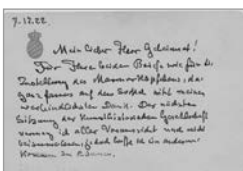 7.12.22.
Mein lieber Herr Geheimrat!
Für Ihre beiden Briefe wie für die
Zustellung des Marmorköpfchens, das
ganz famos auf dem Sockel sitzt meinen
verbindlichsten Dank. Der nächsten
Sitzung der Kunsthistorischen Gesellschaft
vermag ich aller Voraussicht nach nicht
beizuwohnen, jedoch hoffe ich im anderen
kommen zu können.